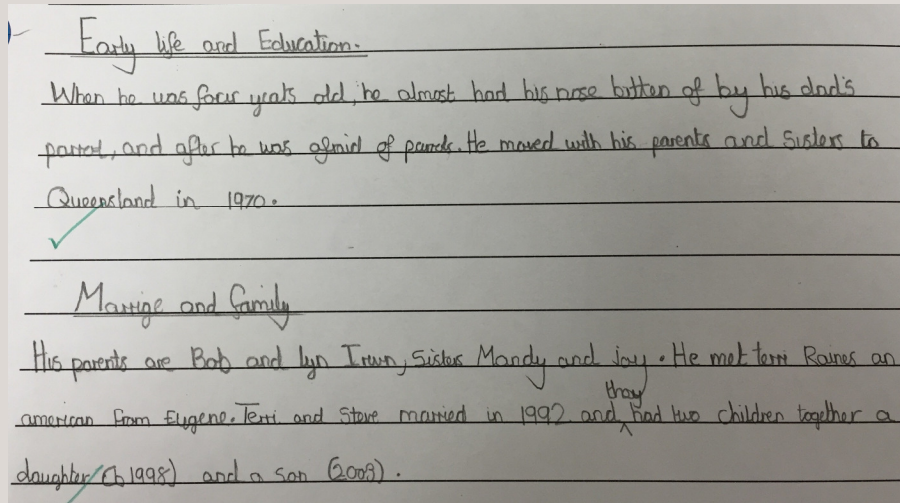 Early life and Education.
When he was four years old, he almost had his nose bitten of by his dad's
parrot, and after he was afraid of parrots. He moved with his parents and Sisters to
Queensland in 1970.
Marrige and family
His parents are Bob and lyn Irwin, Sisters Mandy and joy. He met terri Raines an
american from Eugene. Terri and Steve married in 1992 and they had two children together a
daughter (b 1998) and a son (2003).